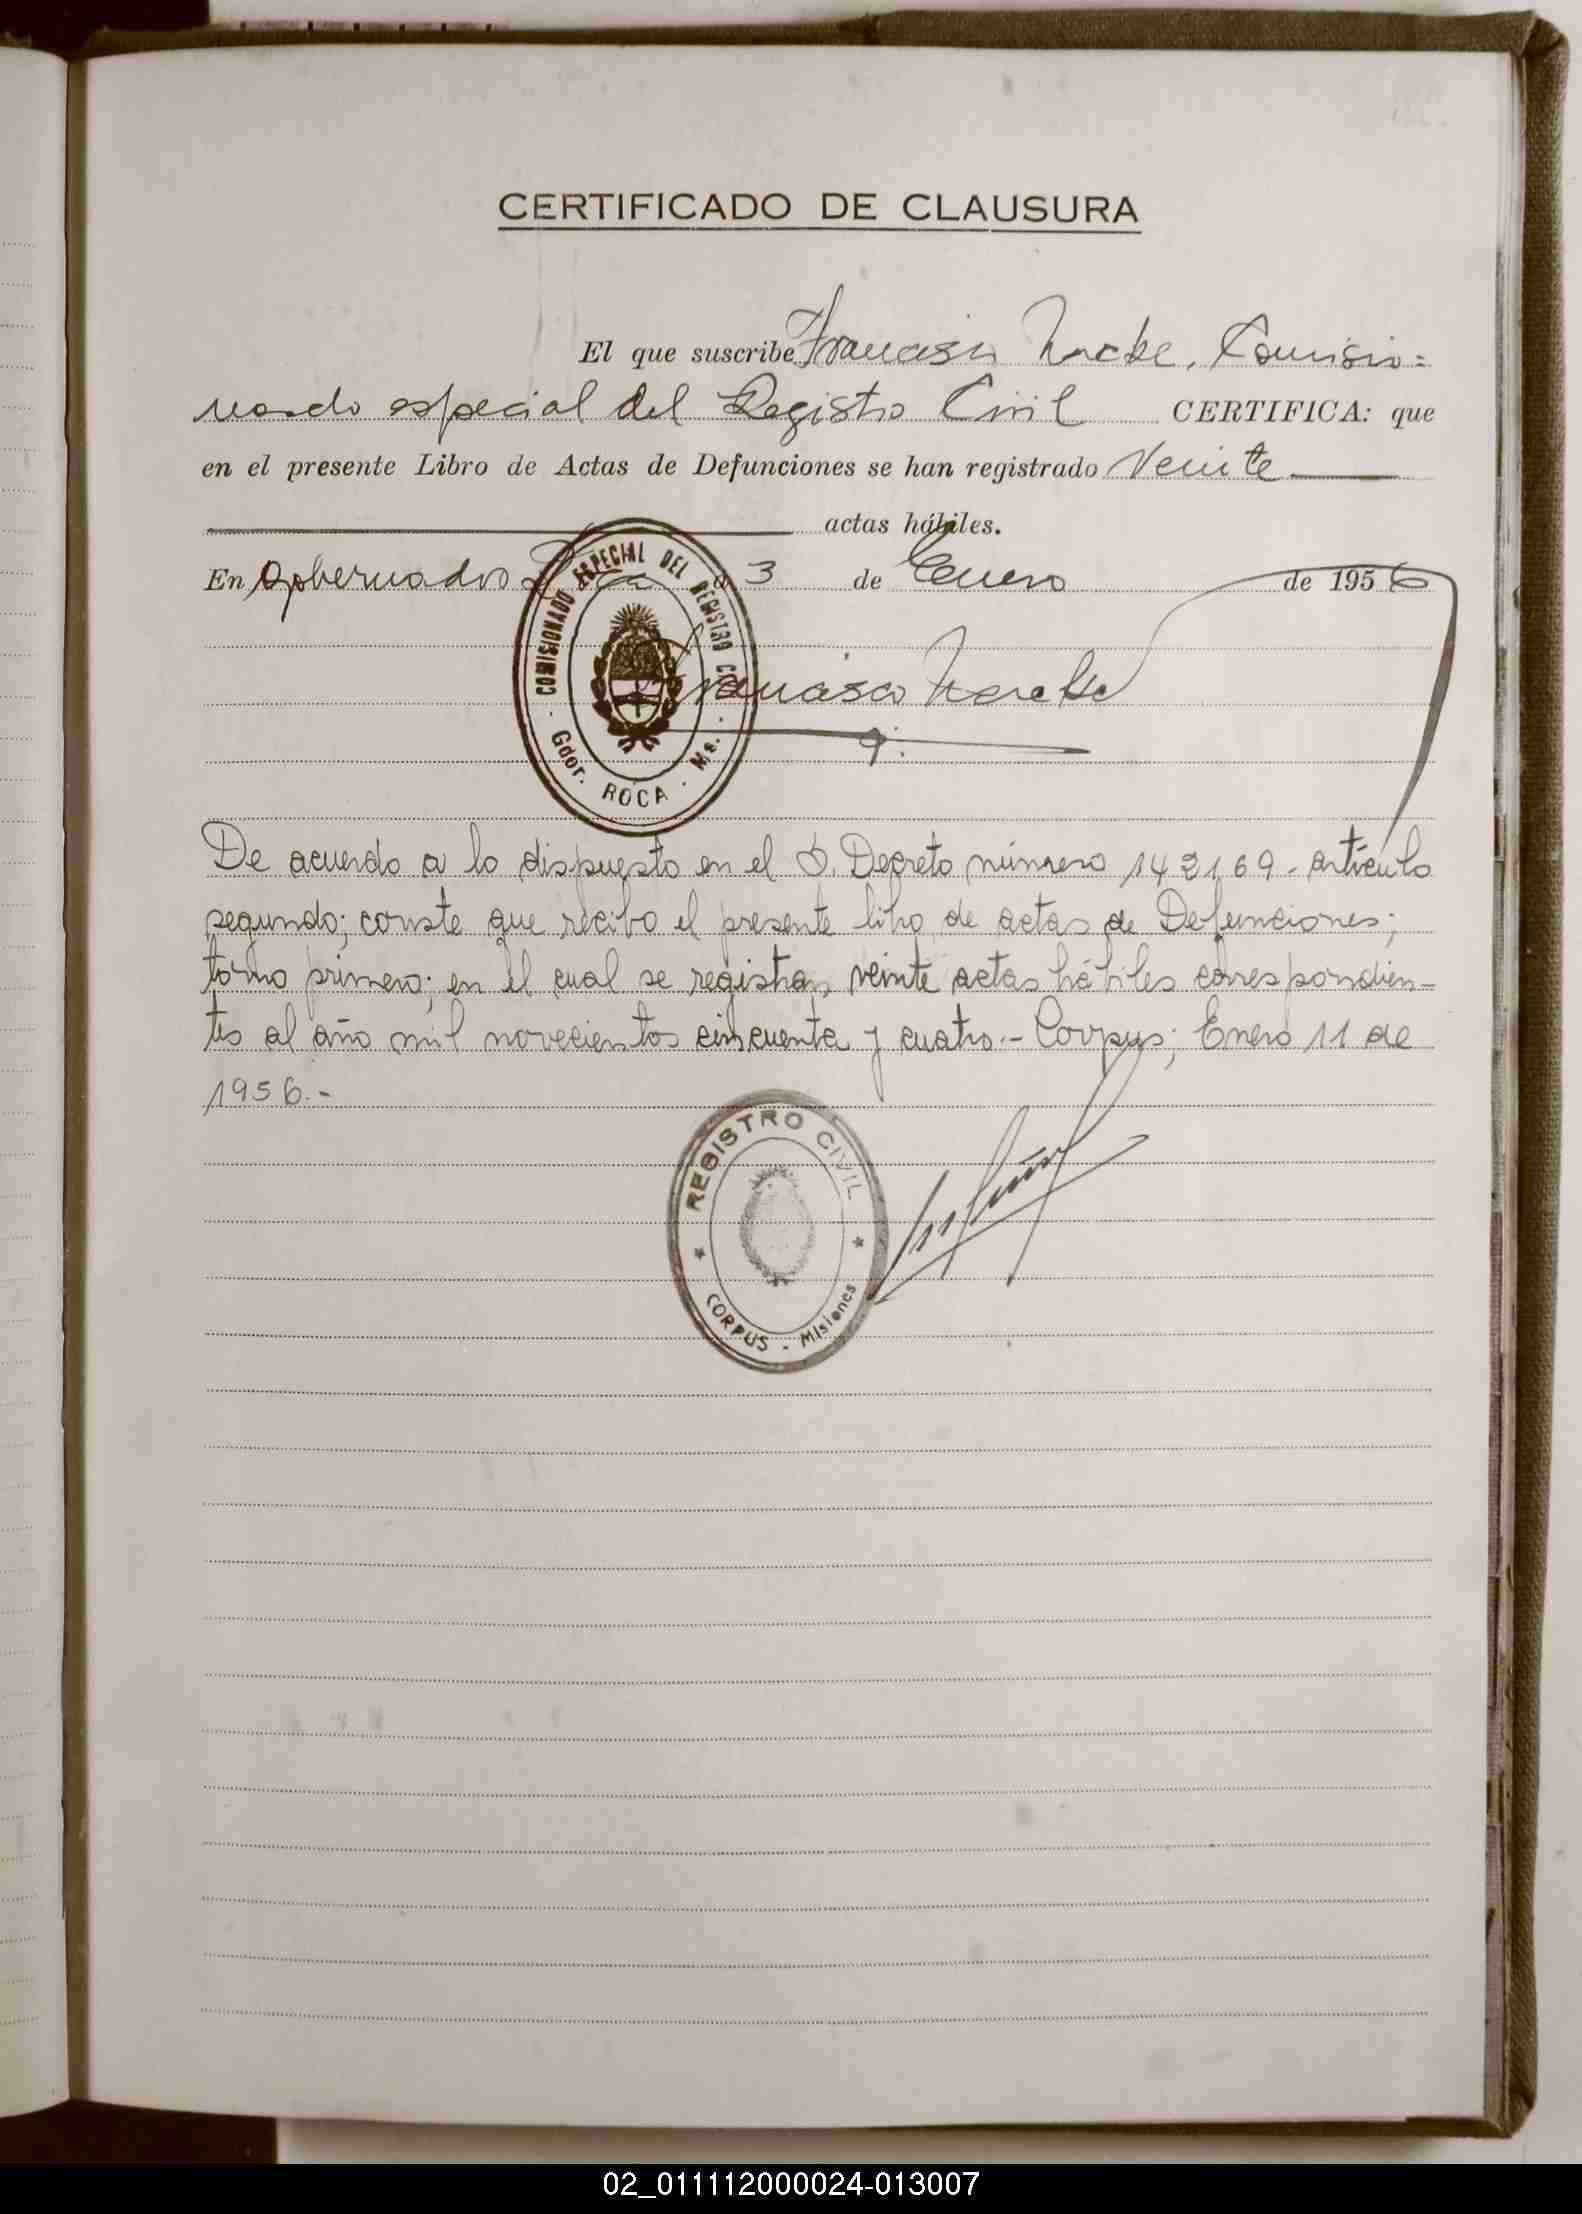 CERTIFICADO DE CLAUSURA
El que suscribe Francisco Comisio=
nado especial del Registro Civil CERTIFICA: que
en el presente Libro de Actas de Defunciones se han registrado Veinte
actas hábiles.
En Gobernador Roca a 3 de Enero de 1956
COMISIONADO ESPECIAL DEL REGISTRO
Gdor. ROCA - Ms.
Francisco
De acuerdo a lo dispuesto en el S. Decreto número 142169 - artículo
segundo; conste que recibo el presente libro de actas de Defunciones;
tomo primero; en el cual se registran veinte actas hábiles correspondien-
tes al año mil novecientos cincuenta y cuatro.- Corpus; Enero 11 de
1956.-
REGISTRO CIVIL
* CORPUS - Misiones *
02_011112000024-013007